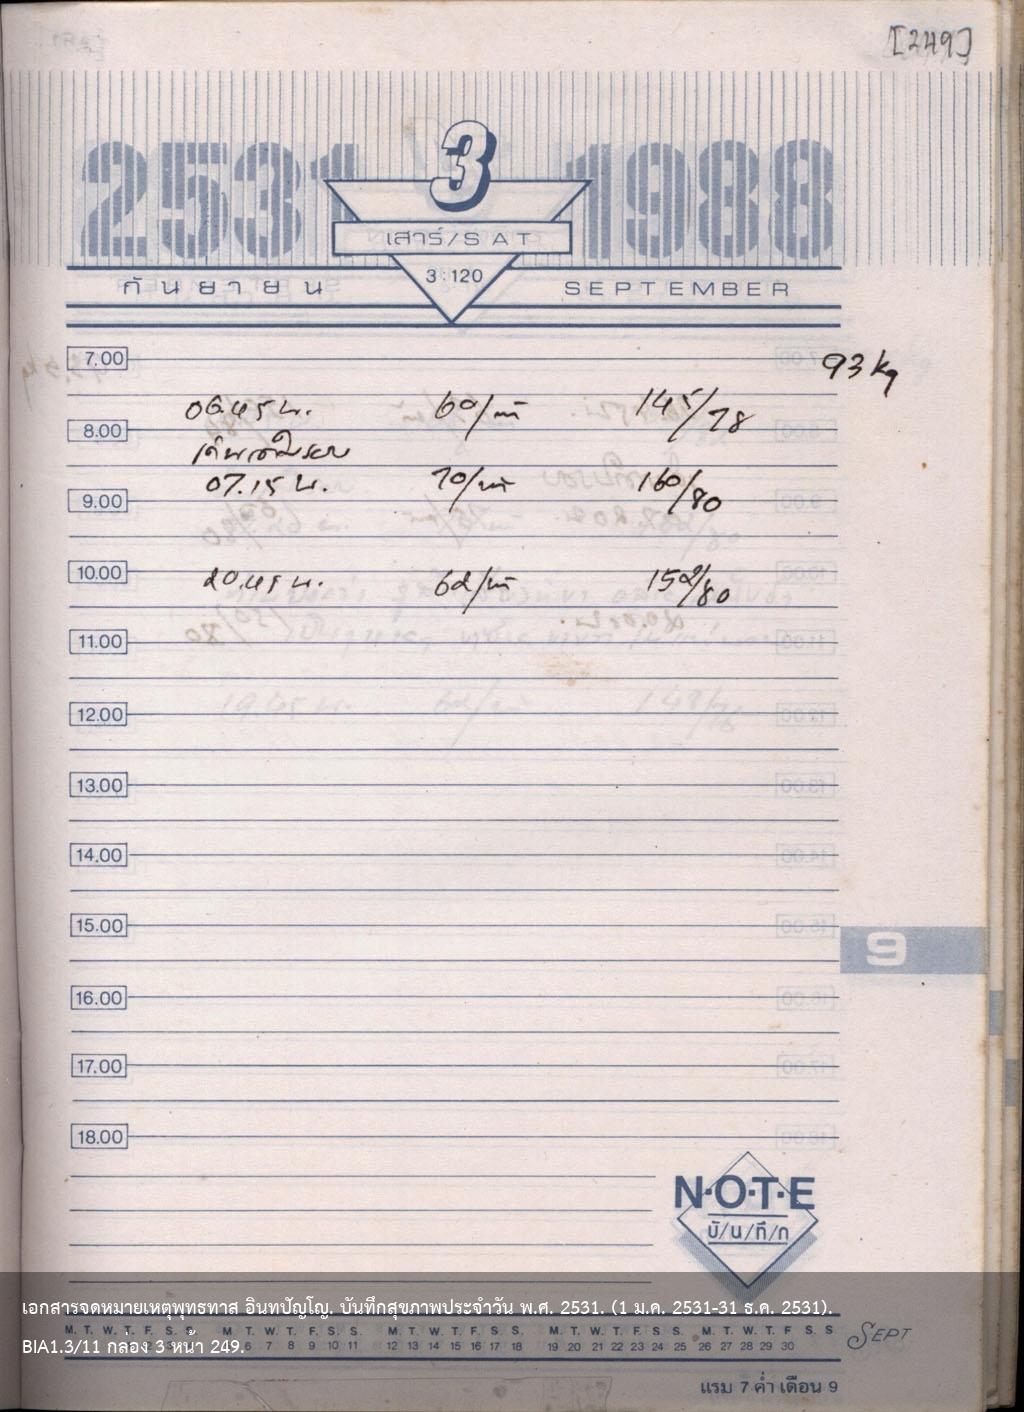 [249]
2531 3 1988
เสาร์/SAT
3:120
กันยายน SEPTEMBER
7.00 93 kg
06.45 น. 60/นาที 145/78
8.00
07.15 น. 70/นาที 160/80
9.00
10.00
20.45 น. 62/นาที 152/80
11.00
12.00
13.00
14.00
15.00
9
16.00
17.00
18.00
N·O·T·E
บั/น/ทึ/ก
เอกสารจดหมายเหตุพุทธทาส อินทปัญโญ. บันทึกสุขภาพประจำวัน พ.ศ. 2531. (1 ม.ค. 2531-31 ธ.ค. 2531).
M. T. W. T. F. S. S. M. T. W. T. F. S. S. M. T. W. T. F. S. S. M. T. W. T. F. S. S. M. T. W. T. F S. S SEPT
6 7 8 9 10 11 12 13 14 15 16 17 18 19 20 21 22 23 24 25 26 27 28 29 30
BIA1.3/11 กล่อง 3 หน้า 249.
แรม 7 ค่ำ เดือน 9